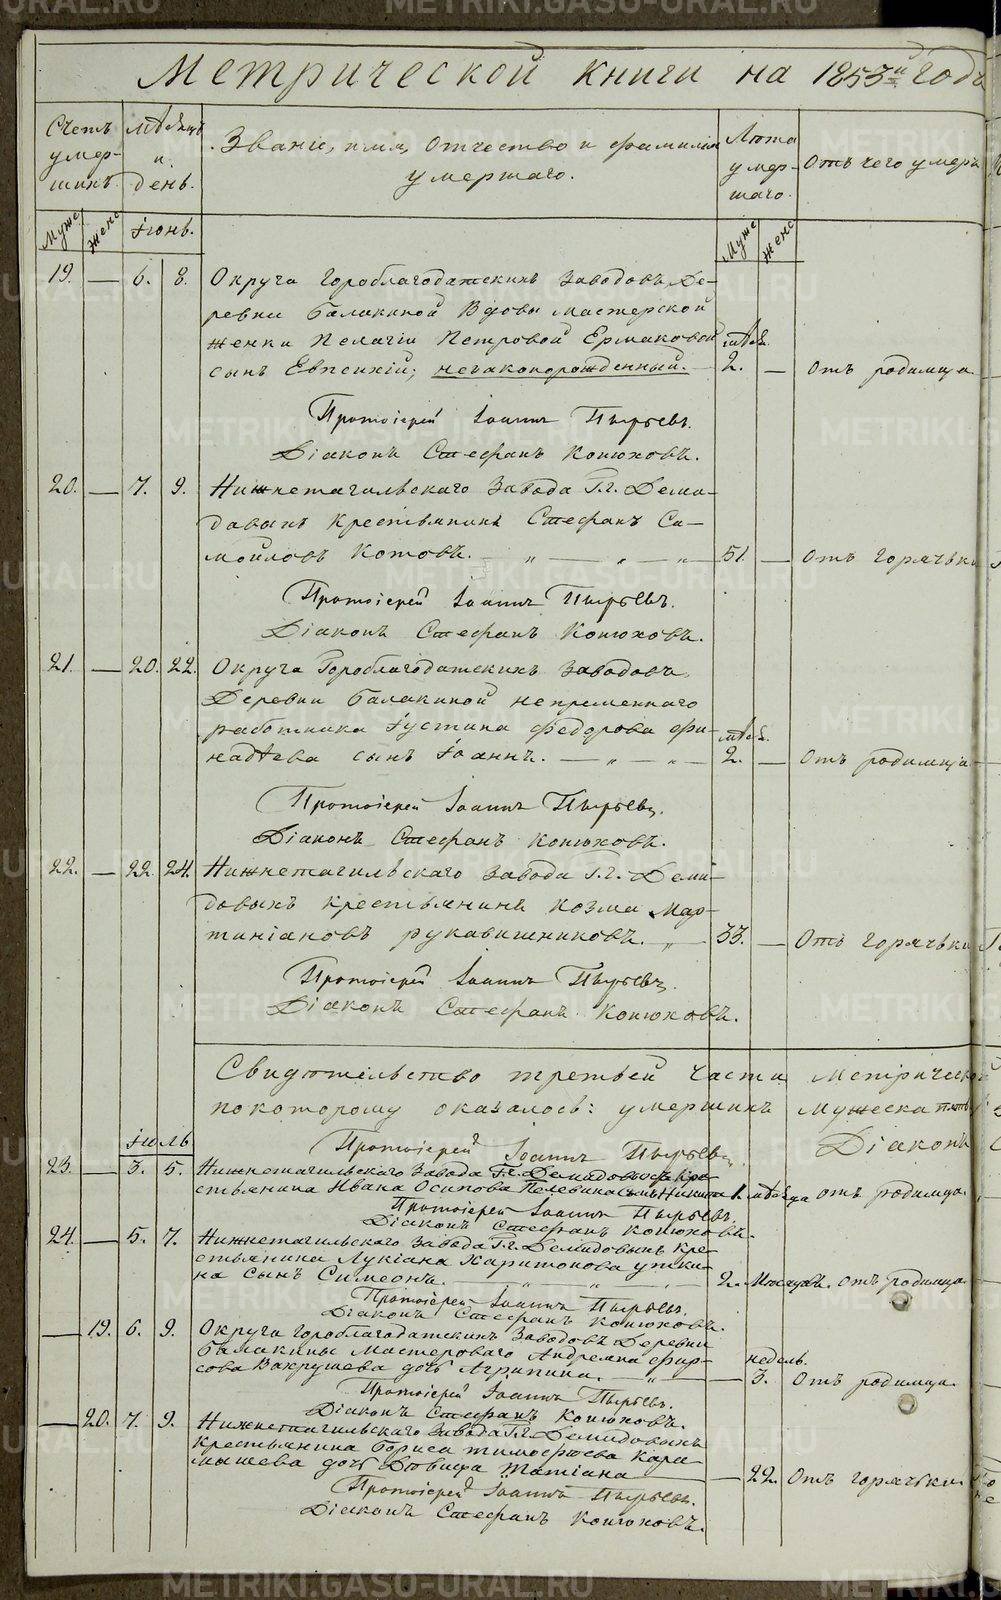 Метрической книги на 1853й годъ
Счетъ умер- шихъ.
Мѣсяцъ и день.
Званіе, имя, отчество и фамилія умершаго.
Лѣта умер- шаго.
Отъ чего умеръ
Муже
женс
Іюнь.
Муже
женс
19. — 6. 8. Округа Гороблагодатскихъ Заводовъ, Де-
ревни Балакиной Вдовы мастерской
женки Пелагіи Петровой Ермаковой мѣся.
сынъ Евпсихій; незаконорожденный. — 2. — Отъ родимца.
Протоіерей Іоаннъ Пырьевъ.
Діаконъ Стефанъ Конюховъ.
20. — 7. 9. Нижнетагильскаго Завода Г.г. Деми-
довыхъ крестьянинъ Стефанъ Са-
мойловъ Котовъ. — „ — „ — „ — 51. — Отъ горячьки
Протоіерей Іоаннъ Пырьевъ.
Діаконъ Стефанъ Конюховъ.
21. — 20. 22. Округа Гороблагодатскихъ Заводовъ
Деревни Балакиной непременнаго
работника Іустина Федорова Фи-
надѣева сынъ Іоаннъ. — „ — „ — мѣся. 2. — Отъ родимца
Протоіерей Іоаннъ Пырьевъ.
Діаконъ Стефанъ Конюховъ.
22. — 22. 24. Нижнетагильскаго Завода Г.г. Деми-
довыхъ крестьянинъ Козма Мар-
тиніановъ рукавишниковъ. „ — 33. — Отъ горячьки
Протоіерей Іоаннъ Пырьевъ.
Діаконъ Стефанъ Конюховъ.
Свидѣтельство третьей части Метрической
покоторому оказалось: умершихъ Мужеска
Протоіерей Іоаннъ Пырьевъ. Діаконъ
Іюль
23. — 3. 5. Нижнетагильскаго Завода Г.г. Демидовыхъ кре-
стьянина Ивана Осипова Пелевина сынъ Никита 1. мѣсяца отъ родимца.
Протоіерей Іоаннъ Пырьевъ.
Діаконъ Стефанъ Конюховъ.
24. — 5. 7. Нижнетагильскаго Завода Г.г. Демидовыхъ кре-
стьянина Лукіана Харитонова утки-
на сынъ Симеонъ. — „ — „ — 2. Мѣсяцовъ. отъ родимца
Протоіерей Іоаннъ Пырьевъ.
Діаконъ Стефанъ Конюховъ.
— 19. 6. 9. Округа Гороблагодатскихъ Заводовъ Деревни
Балакины Мастероваго Андреяна Фир-
сова Вахрушева дочь Агрипина. — „ — недель. 3. Отъ родимца.
Протоіерей Іоаннъ Пырьевъ.
Діаконъ Стефанъ Конюховъ.
— 20. 7. 9. Нижнетагильскаго Завода Г.г. Демидовыхъ
крестьянина Бориса тимофеева Кара-
мышева дочь Дѣвица Татіана — 22. Отъ горячьки.
Протоіерей Іоаннъ Пырьевъ.
Діаконъ Стефанъ Конюховъ.
METRIKI.GASO-URAL.RU